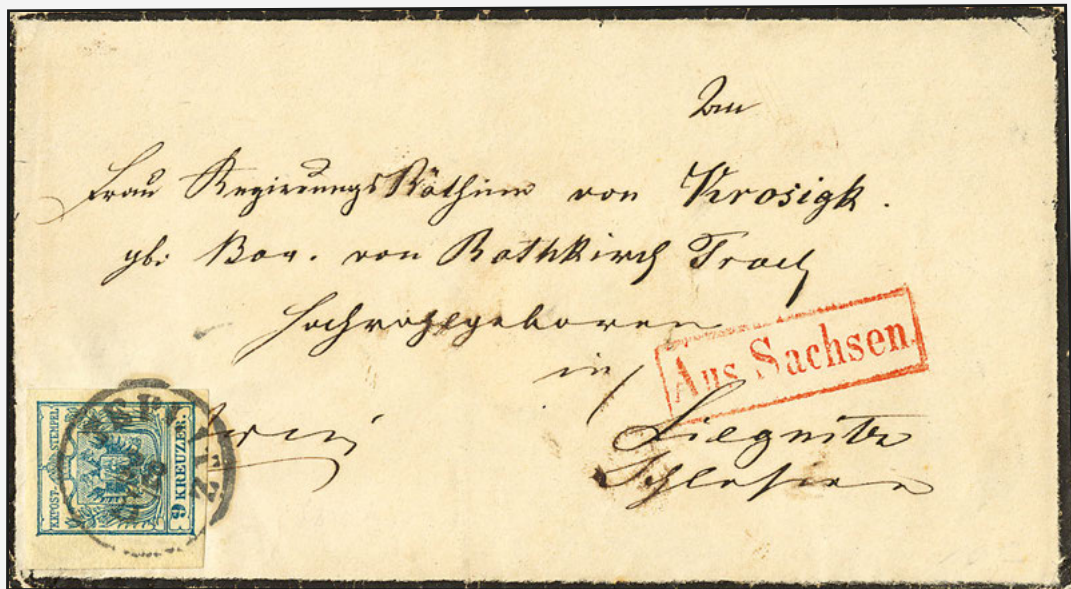 An
Frau RegierungsRäthinn von Krosigk.
geb. Bar. von Rothkirch Trach
Hochwohlgeboren
in
Aus Sachsen.
Liegnitz
Schlesien
franco
KKPOST-STEMPEL
9 KREUZER.